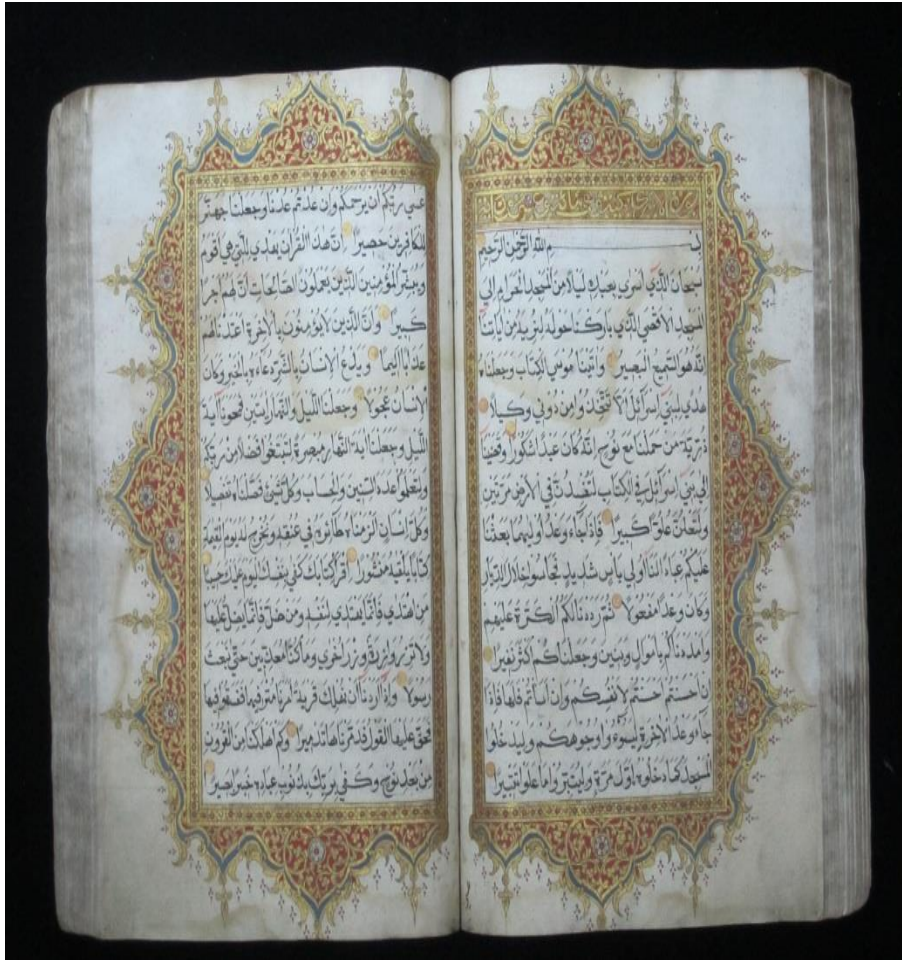 بسم الله الرحمن الرحيم
سبحان الذي اسرى بعبده ليلا من المسجد الحرام الى
المسجد الاقصى الذي باركنا حوله لنريه من اياتنا
انه هو السميع البصير واتينا موسى الكتاب وجعلناه
هدى لبني اسرائيل الا تتخذوا من دوني وكيلا
ذرية من حملنا مع نوح انه كان عبدا شكورا وقضينا
الى بني اسرائيل في الكتاب لتفسدن في الارض مرتين
ولتعلن علوا كبيرا فاذا جاء وعد اوليهما بعثنا
عليكم عبادا لنا اولي باس شديد فجاسوا خلال الديار
وكان وعدا مفعولا ثم رددنا لكم الكرة عليهم
وامددناكم باموال وبنين وجعلناكم اكثر نفيرا
ان احسنتم احسنتم لانفسكم وان اساتم فلها فاذا
جاء وعد الاخرة ليسوؤا وجوهكم وليدخلوا
المسجد كما دخلوه اول مرة وليتبروا ما علوا تتبيرا
عسى ربكم ان يرحمكم وان عدتم عدنا وجعلنا جهنم
للكافرين حصيرا ان هذا القران يهدي للتي هي اقوم
ويبشر المؤمنين الذين يعملون الصالحات ان لهم اجرا
كبيرا وان الذين لا يؤمنون بالاخرة اعتدنا لهم
عذابا اليما ويدع الانسان بالشر دعاءه بالخير وكان
الانسان عجولا وجعلنا الليل والنهار ايتين فمحونا اية
الليل وجعلنا اية النهار مبصرة لتبتغوا فضلا من ربكم
ولتعلموا عدد السنين والحساب وكل شيئ فصلناه تفصيلا
وكل انسان الزمناه طائره في عنقه ونخرج له يوم القيمة
كتابا يلقيه منشورا اقرا كتابك كفى بنفسك اليوم عليك حسيبا
من اهتدى فانما يهتدي لنفسه ومن ضل فانما يضل عليها
ولا تزر وازرة وزر اخرى وما كنا معذبين حتى نبعث
رسولا واذا اردنا ان نهلك قرية امرنا مترفيها ففسقوا فيها
فحق عليها القول فدمرناها تدميرا وكم اهلكنا من القرون
من بعد نوح وكفى بربك بذنوب عباده خبيرا بصيرا